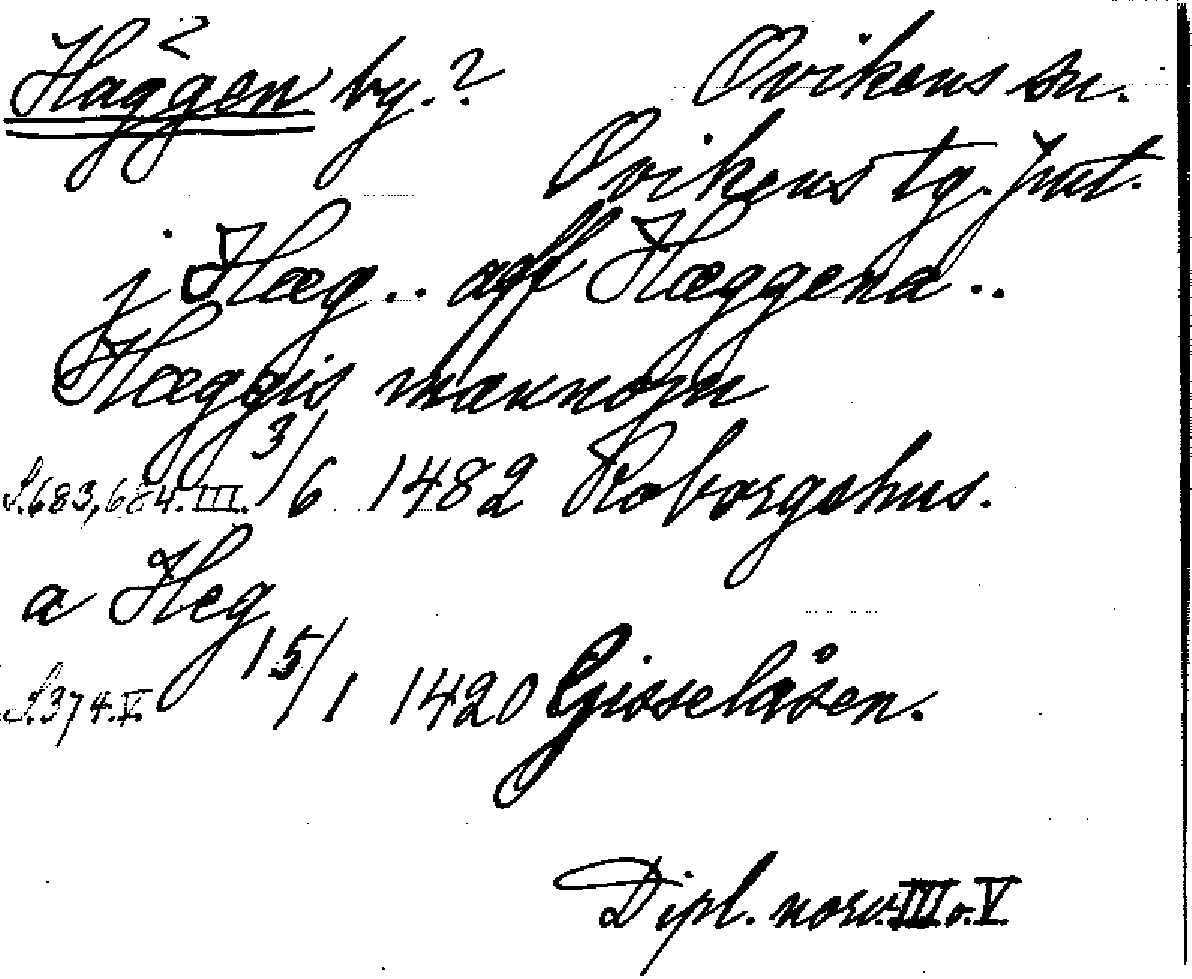 Häggen by.? Ovikens sn.
Ovikens tg. Jmt.
j Hæg.. aff Hæggena..
Hæggis mannom
S.683,684.III. 3/6 1482 Roborgshus.
a Heg
S.374.V. 15/1 1420 Gisselåsen.
Dipl. norv. III o. V.